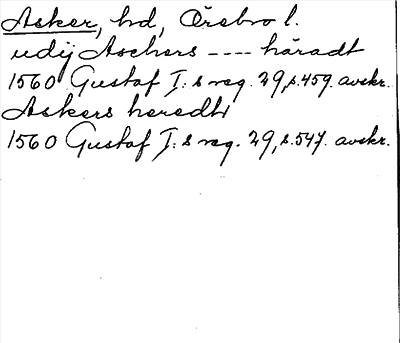 Asker, hd, Örebro l.
udij Aschers ---- häradt
1560 Gustaf I:s reg. 29, s. 459. avskr.
Askers heredt
1560 Gustaf I:s reg. 29, s. 547. avskr.